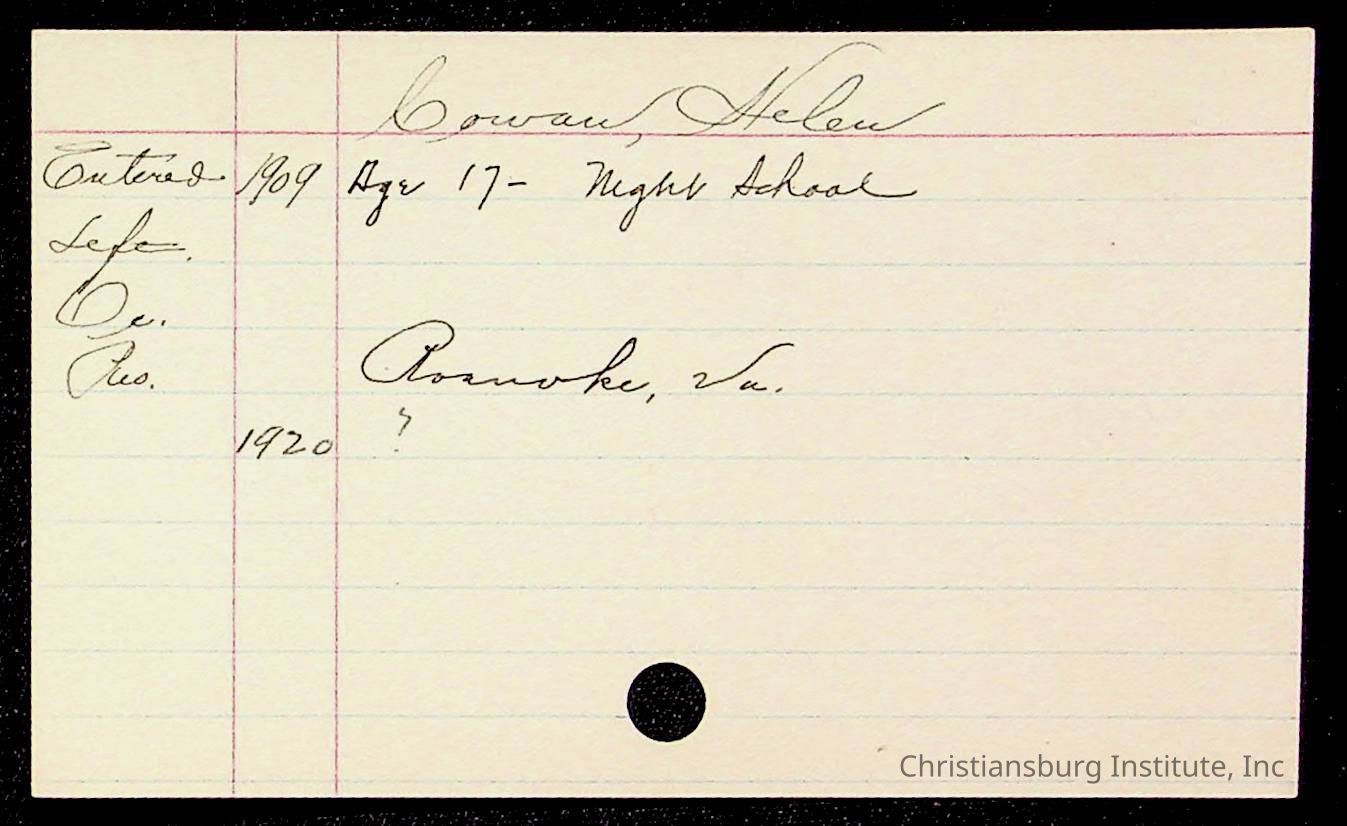 Cowan, Helen
Entered 1909 Age 17- Night School
Left.
Oc.
Res. Roanoke, Va.
1920 ?
Christiansburg Institute, Inc